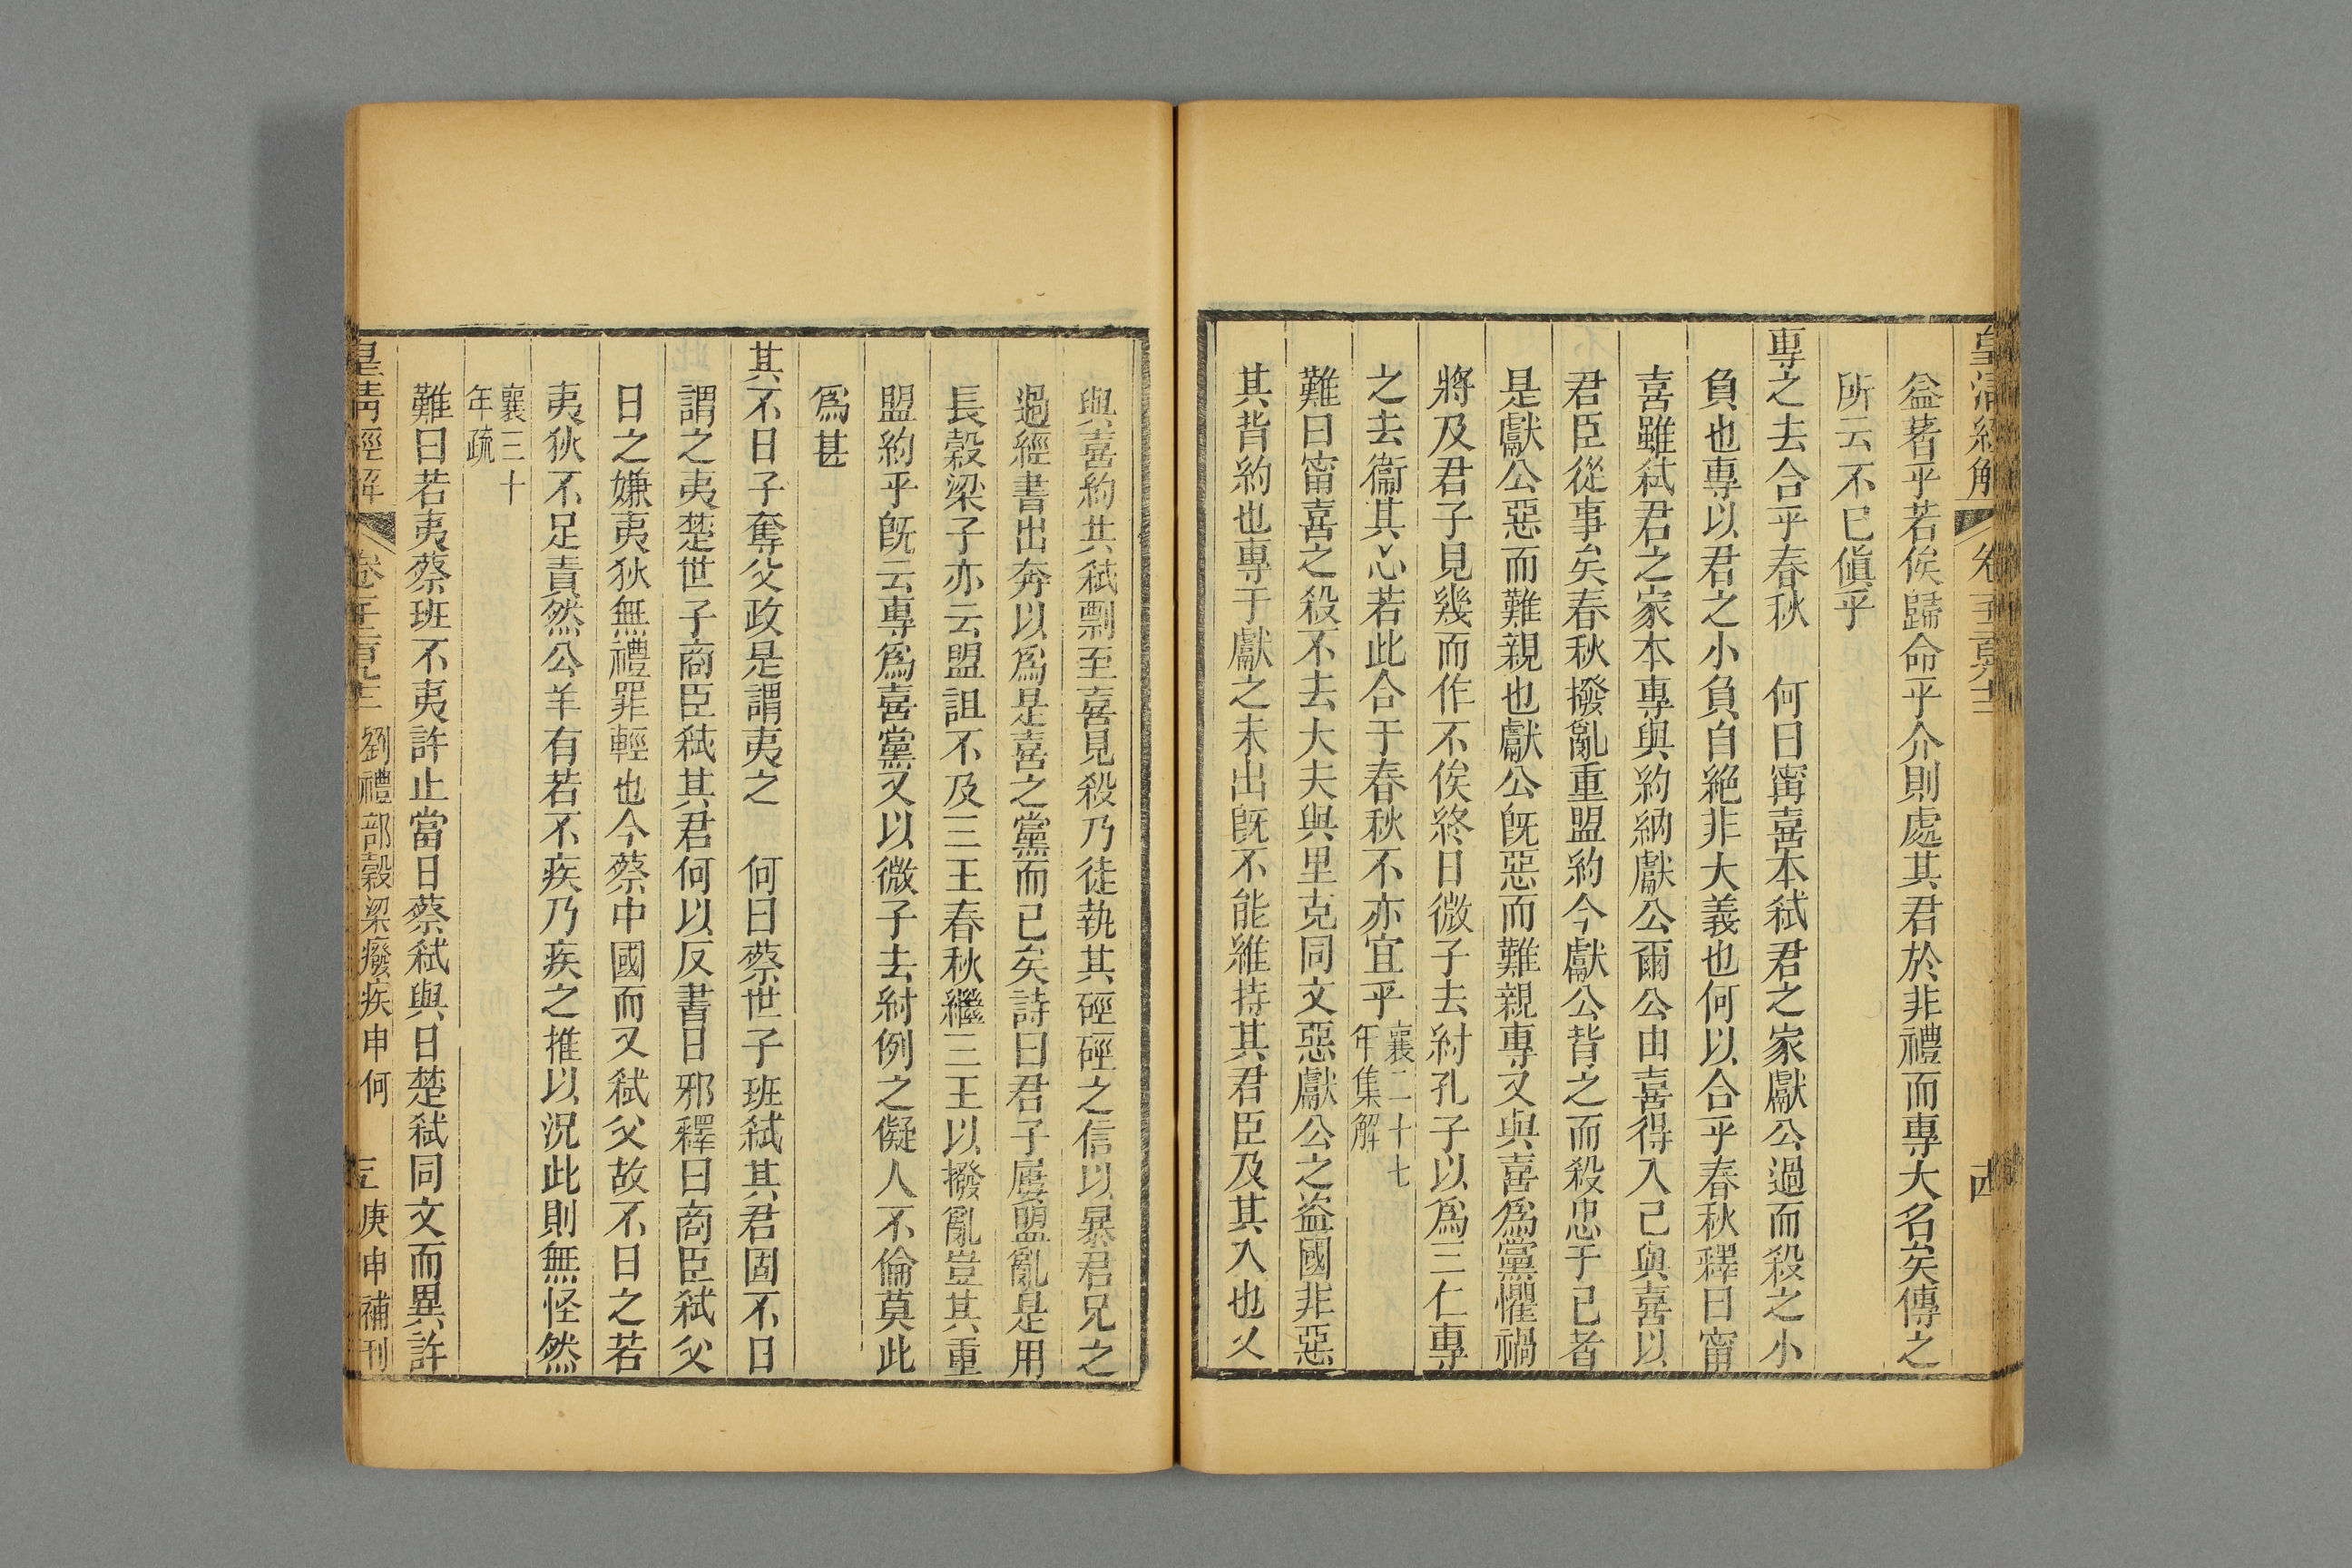 皇清經解
卷千二百九十三
益著乎若俟歸命乎介則處其君於非禮而專大名矣傳之
所云不已傎乎
專之去合乎春秋　何曰甯喜本弒君之家獻公過而殺之小
負也專以君之小負自絶非大義也何以合乎春秋釋曰甯
喜雖弒君之家本專與約納獻公爾公由喜得入已與喜以
君臣從事矣春秋撥亂重盟約今獻公背之而殺忠于己者
是獻公惡而難親也獻公旣惡而難親專又與喜爲黨懼禍
將及君子見幾而作不俟終日微子去紂孔子以爲三仁專
之去衞其心若此合于春秋不亦宜乎襄二十七年集解
難曰甯喜之殺不去大夫與里克同文惡獻公之盜國非惡
其背約也專于獻之未出旣不能維持其君臣及其入也又
與喜約共弒剽至喜見殺乃徒執其硜硜之信以暴君兄之
過經書出奔以爲是喜之黨而已矣詩曰君子屢盟亂是用
長穀梁子亦云盟詛不及三王春秋繼三王以撥亂豈其重
盟約乎旣云專爲喜黨又以微子去紂例之儗人不倫莫此
爲甚
其不日子奪父政是謂夷之　何曰蔡世子班弒其君固不日
謂之夷楚世子商臣弒其君何以反書日邪釋曰商臣弒父
日之嫌夷狄無禮罪輕也今蔡中國而又弒父故不日之若
夷狄不足責然公羊有若不疾乃疾之推以況此則無怪然
襄三十年疏
難曰若夷蔡班不夷許止當日蔡弒與日楚弒同文而異許
皇清經解
劉禮部穀梁癈疾申何
庚申補刊